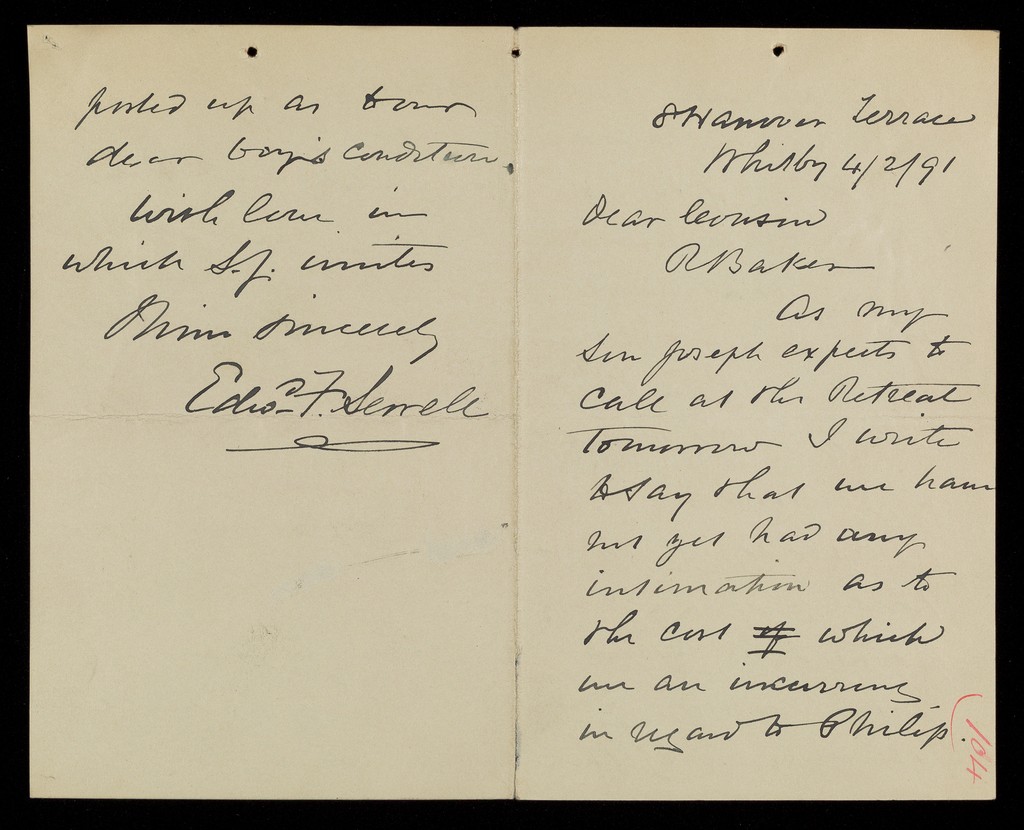 8 Hanover Terrace
Whitby 4/2/91
Dear Cousin
R Baker
As my
son Joseph expects to
call at the Retreat
tomorrow I write
to say that we have
not yet had any
intimation as to
the cost of which
we are incurring
in regard to Philip.
104
posted up as to our
dear boy's condition.
With love in
which S.J. unites
Thine sincerely
Edwd. F. Sewell